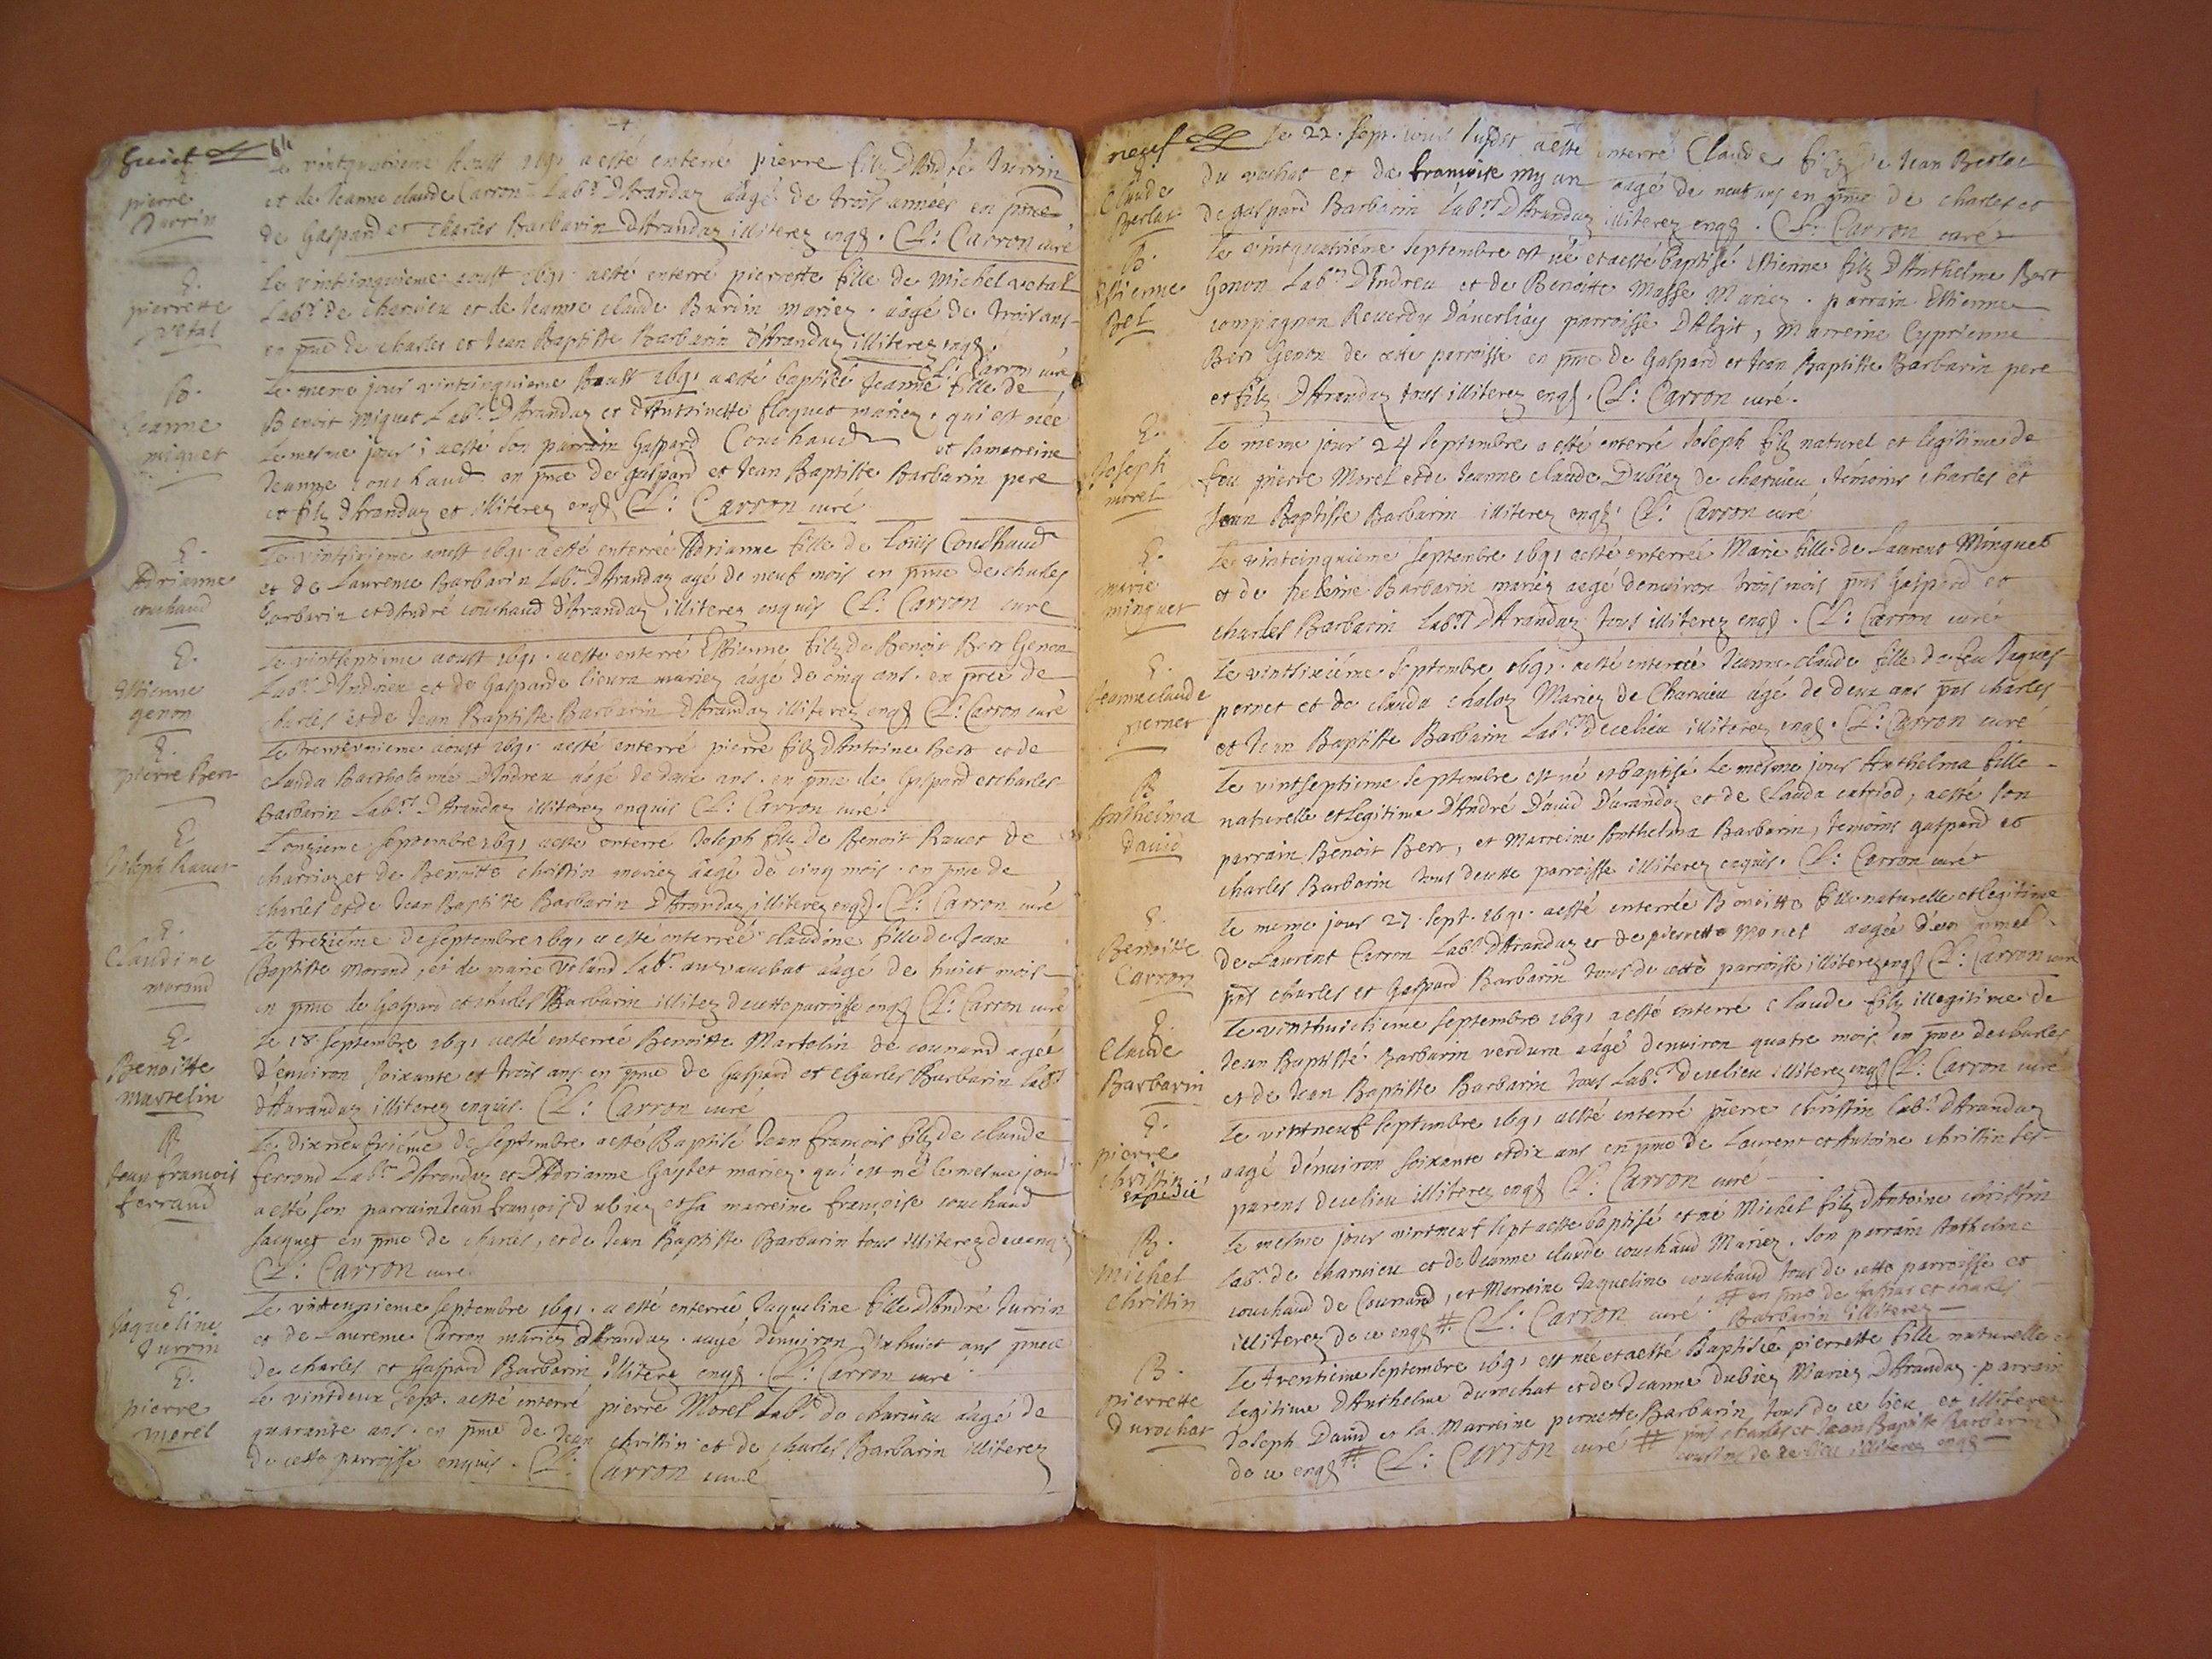 huict
E.
pierre
Durrin
Le vintquatrieme Aoust 1691 a esté enterré pierre filz D'André Durrin
et de Jeanne claude Carron Labr. D'Aranday aâgé de trois années en pnce
de Gaspard et Charles Barbarin D'Aranday illiterez enqs. Cl: Carron curé
E.
pierrette
vetal
Le vintcinquieme aoust 1691 a esté enterré pierrette fille de Michel vetal
Labr. de charvieu et de Jeanne claude Burdin mariez . aâgé de trois ans
en pnce de charles et Jean Baptiste Barbarin D'Aranday illiterez enqs.
Cl: Carron curé
B.
Jeanne
miguet
Le meme jour vintcinquieme Aoust 1691 a esté baptisée Jeanne fille de
Benoit Miguet Labr. D'Aranday et D'Anthoinette floquet mariez . qui est née
Le mesme jour ; a esté son parrain Gaspard Couchaud et sa marreine
Jeanne Couchaud en pnce de gaspard et Jean Baptiste Barbarin pere
et filz D'Aranday et illiterez enqs Cl: Carron curé
E.
Adrianne
couchaud
Le vintsixieme aoust 1691 a esté enterrée Adrianne fille de Louis Couchaud
et de Laurence Barbarin Labr. D'Aranday agé de neuf mois en pnce de charles
Barbarin et d'André couchaud D'Aranday illiterez enquis Cl: Carron curé
E.
Estienne
genon
Le vintseptieme aoust 1691 . a esté enterré Estienne filz de Benoit Bert Genon
Labr. D'Indrieu et de Gasparde lieura mariez aâgé de cinq ans . en pnce de
charles et de Jean Baptiste Barbarin D'Aranday illiterez enqs Cl: Carron curé
E.
pierre Bert
Le trenteunieme aoust 1691 a esté enterré pierre filz d'Antoine Bert et de
Clauda Bartholomée D'Indreu aâgé de deux ans . en pnce de Gaspard et charles
Barbarin Labrs. D'Aranday illiterez enquis Cl: Carron curé
E.
Joseph Ravet
L'onzieme septembre 1691 a esté enterré Joseph filz de Benoit Ravet de
charvieu et de Benoitte christin mariez aâgé de cinq mois . en pnce de
charles et de Jean Baptiste Barbarin D'Aranday illiterez enqs. Cl: Carron curé
E.
Claudine
morand
Le treziéme de septembre 1691 a esté enterrée claudine fille de Jean
Baptiste morand , et de marie voland Labr. au vauchat aâgé de huict mois
en pnce de Gaspard et charles Barbarin illitez de cette parroisse enqs Cl: Carron curé
E.
Benoitte
martelin
Le 18 septembre 1691 a esté enterrée Benoitte Martelin de counand agée
d'environ soixante et trois ans en pnce de Gaspard et Charles Barbarin Labrs
d'Aranday illiterez enquis. Cl: Carron curé
B
Jean françois
ferrand
Le dixneufviéme de septembre a esté Baptisé Jean françois filz de claude
ferrand Labr. D'Aranday et D'Adrianne Gaybet mariez . qui est né le mesme jour
a esté son parrain Jean françois Dubiez et sa marreine françoise couchaud
Jacquet en pnce de charles , et de Jean Baptiste Barbarin tous illiterez de ce enqs
Cl: Carron curé
E.
Jaqueline
Durrin
Le vinteunieme septembre 1691 . a esté enterrée Jaqueline fille D'André Durrin
et de Laurence Carron mariez D'Aranday . aagé d'environ dixhuict ans pnce
de charles et Gaspard Barbarin illiterez enqs . Cl: Carron curé
E.
pierre
morel
Le vintdeux sept. a esté enterré pierre Morel Labr. de charvieu aâgé de
quarante ans . en pnce de Jean christin et de charles Barbarin illiterez
de cette parroisse enquis . Cl: Carron curé
neuf
E
Claude
Berlat
Le 22. sept. a esté enterré Claude filz de Jean Berlat
du vachat et de francoise myan aagé de neuf ans en pnce de charles et
de gaspard Barbarin Labrs D'Aranday illiterez enqs . Cl: Carron curé
B.
Estienne
Bert
Le vintquatriéme septembre est né et a esté baptisé Estienne filz D'Anthelme Bert
Genon Labr. D'Indreu et de Benoitte Masse Mariez . parrain Estienne
compagnon Reverdy parroisse D'Algit , Marreine Cyprienne
Bert Genon de cette parroisse en pnce de Gaspard et Jean Baptiste Barbarin pere
et filz D'Aranday tous illiterez enqs . Cl: Carron curé .
E.
Joseph
morel
Le méme jour 24 septembre a esté enterré Joseph filz naturel et legitime de
feu pierre Morel et de Jeanne claude Dubiez de charvieu , témoins charles et
Jean Baptiste Barbarin illiterez enqs . Cl: Carron curé
E.
marie
minguet
Le vintcinquieme septembre 1691 a esté enterrée Marie fille de Laurent Minguet
et de heleine Barbarin mariez aagé d'environ trois mois pns Gaspard et
charles Barbarin Labrs D'Aranday tous illiterez enqs . Cl: Carron curé
E.
Jeanneclaude
pernet
Le vintsixiéme septembre 1691 . a esté enterrée Jeanne claude fille de feu Jaques
pernet et de clauda chaloz Mariez de Charvieu agé de deux ans pns charles
et Jean Baptiste Barbarin Labrs de ce lieu illiterez enqs . Cl: Carron curé
B
Anthelma
David
Le vintseptieme septembre est né et baptisé Le mesme jour Anthelma fille
naturelle et legitime D'André David D'Aranday et de Clauda catriod , a esté son
parrain Benoit Bert , et Marreine Anthelma Barbarin , temoins gaspard et
charles Barbarin tous de cette parroisse illiterez enquis . Cl: Carron curé
E.
Benoitte
Carron
le meme jour 27. sept. 1691. a esté enterrée Benoitte fille naturelle et legitime
de Laurent Carron Labr D'Aranday et de pierrette Monet aagée d'un année
pns charles et Gaspard Barbarin tous de cette parroisse illiterez enqs Cl: Carron curé
E.
Claude
Barbarin
Le vinthuictieme septembre 1691 a esté enterré Claude filz illegitime de
Jean Baptiste Barbarin verdura aâgé d'environ quatre mois en pnce de charles
et de Jean Baptiste Barbarin tous Labrs de ce lieu illiterez enqs Cl: Carron curé
E.
pierre
christin
expedié
Le vintneuf septembre 1691 a esté enterré pierre christin Labr. D'Aranday
aagé d'environ soixante et dix ans en pnce de Laurent et Antoine christin ses
parens de ce lieu illiterez enqs Cl: Carron curé
B.
Michel
christin
Le mesme jour vintneuf sept a esté baptisé et né Michel filz d'Antoine christin
Labr. de charvieu et de Jeanne claude couchaud Mariez . son parrain Anthelme
couchaud de Counand , et Marreine Jaqueline couchaud tous de cette parroisse et
illiterez de ce enqs #. Cl: Carron curé . # en pnce de Gaspar et charles
Barbarin illiterez
B.
pierrette
Durochat
Le trentieme septembre 1691 est née et a esté Baptisée pierrette fille naturelle et
legitime D'Anthelme Durochat et de Jeanne Dubiez Mariez D'Aranday . parrain
Joseph David et la Marreine pernette Barbarin tous de ce lieu et illiterez
de ce enqs #. Cl: Carron curé # pns charles et Jean Baptiste Barbarin
cousins de ce lieu illiterez enqs